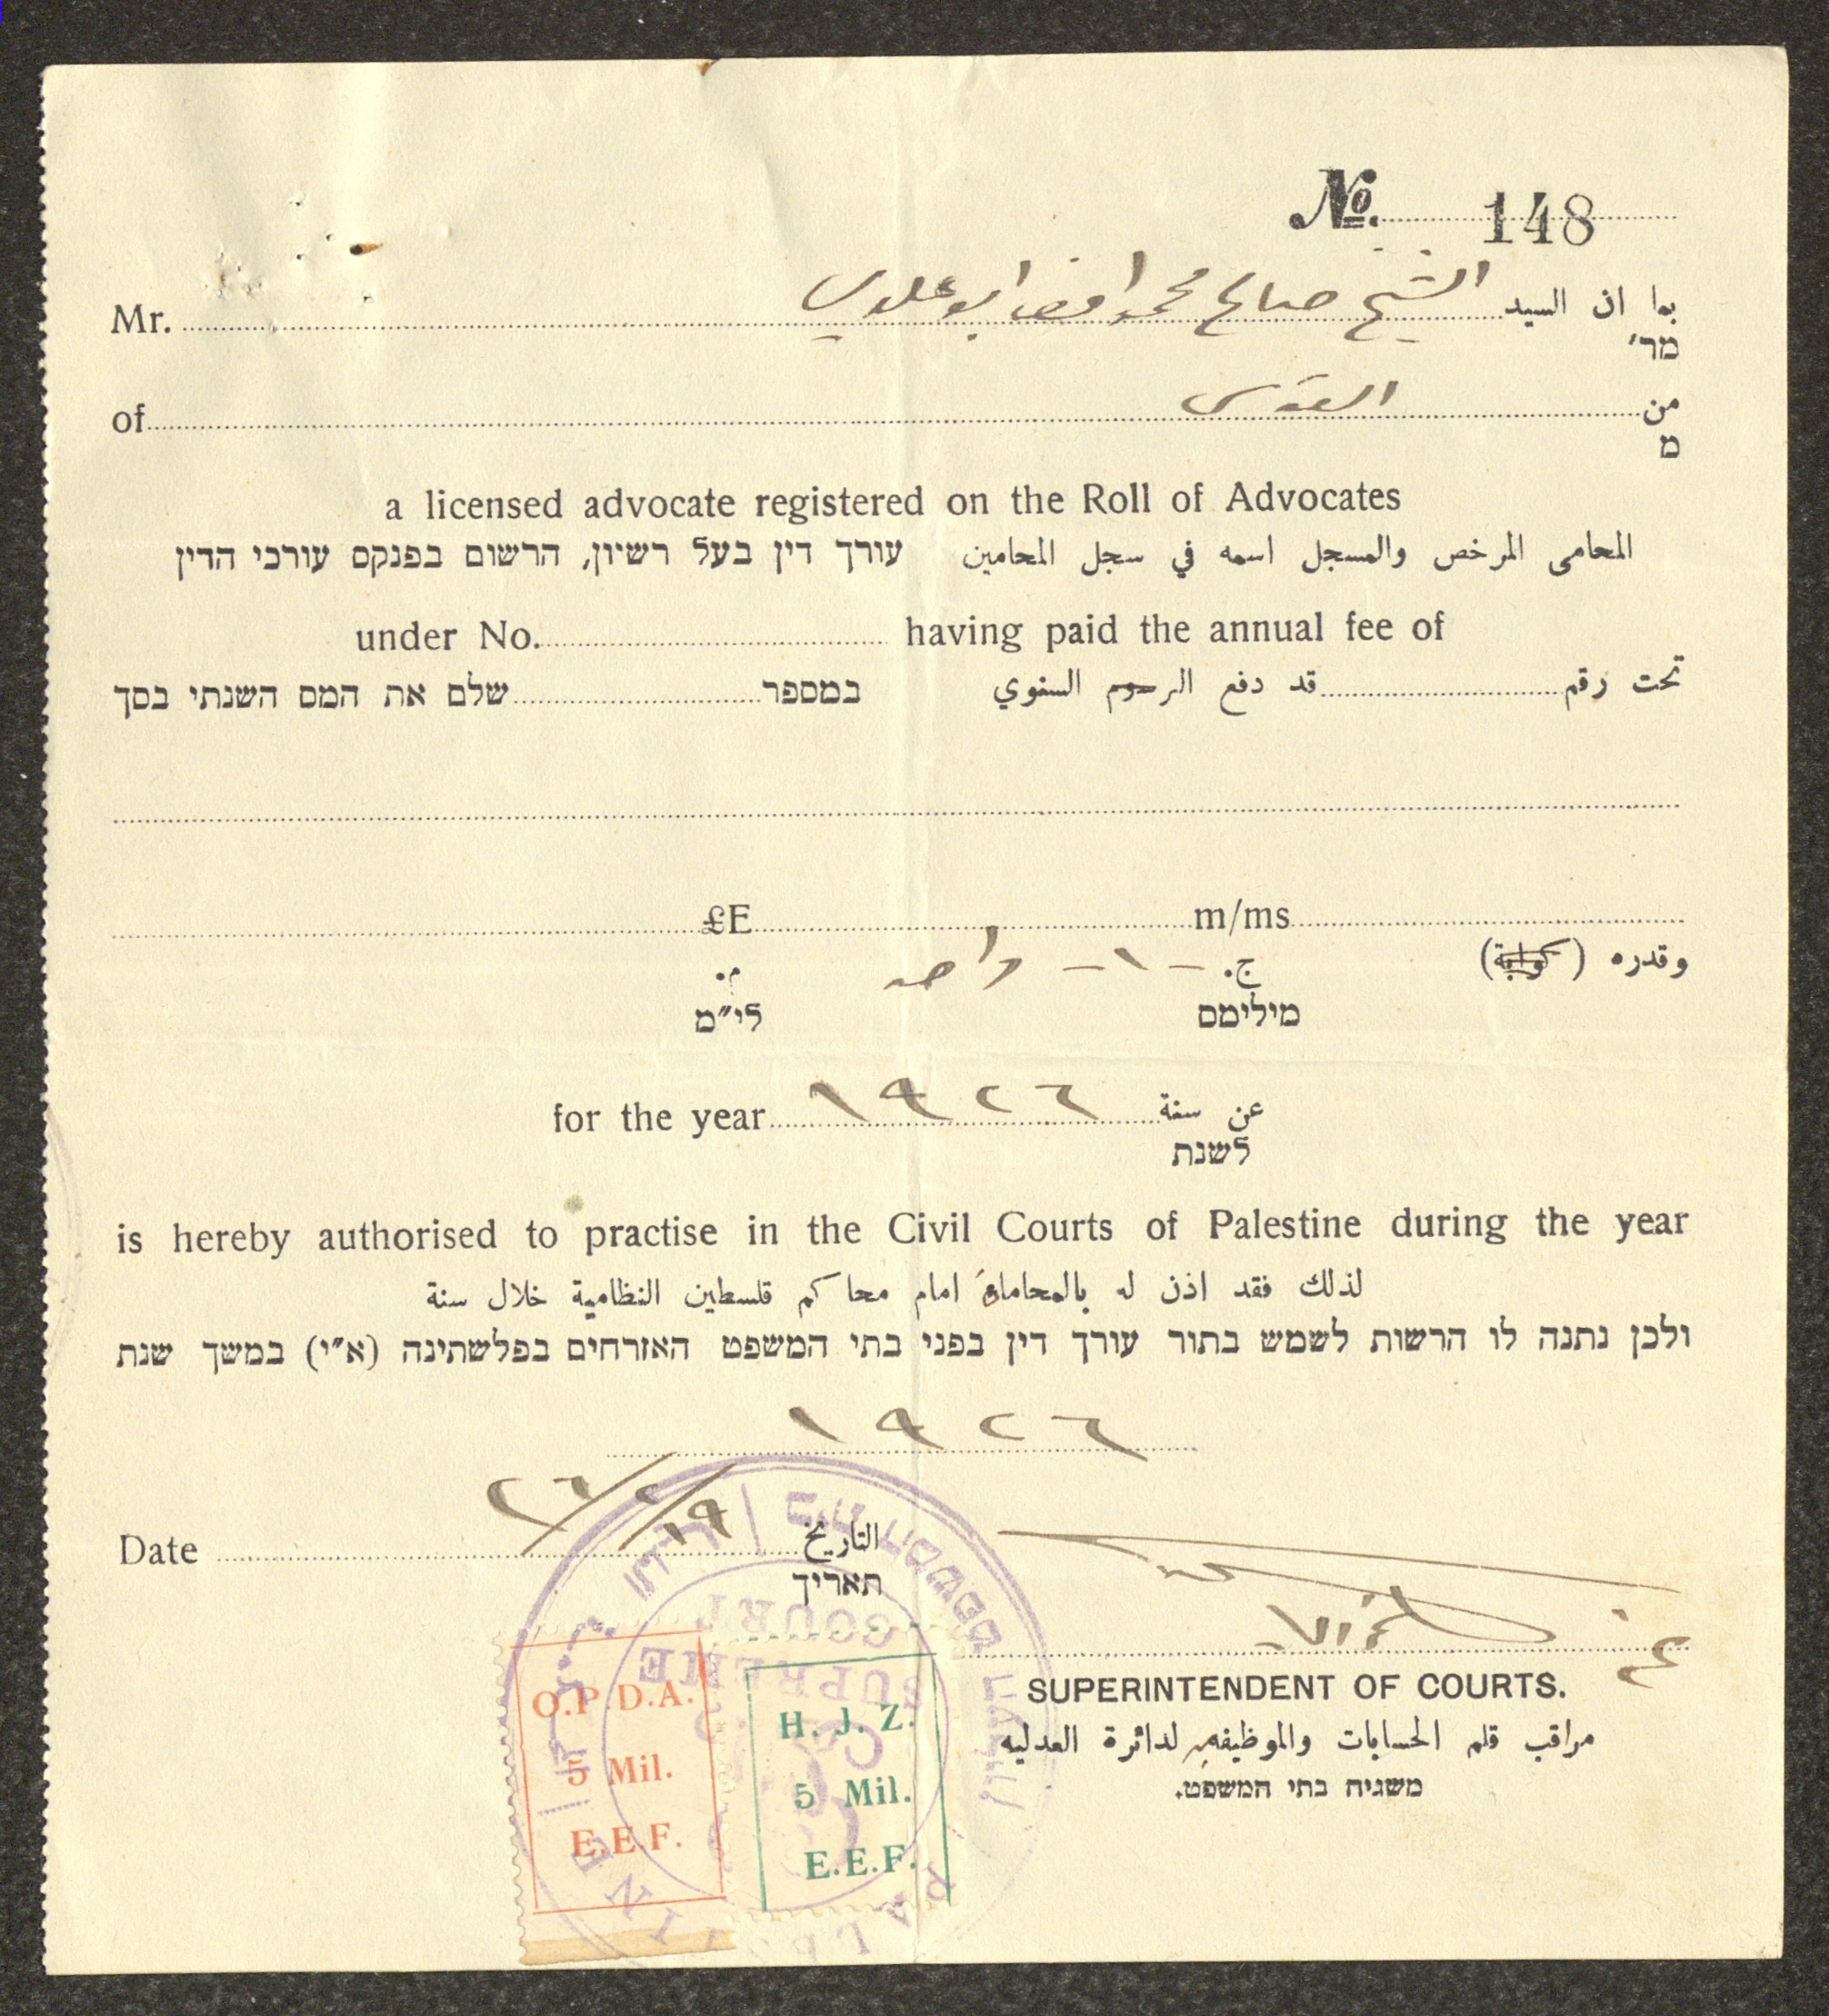 No. 148
Mr. بما ان السيد الشيخ صالح محمد ابو علوي
מר׳
of من القدس
מ
a licensed advocate registered on the Roll of Advocates
المحامى المرخص والمسجل اسمه في سجل المحامين עורך דין בעל רשיון, הרשום בפנקס עורכי הדין
under No. having paid the annual fee of
تحت رقم قد دفع الرسوم السنوي במספר שלם את המס השנתי בסך
£E m/ms
وقدره ( ) ج. -١- واحد م.
מילימס לי״מ
for the year ١٩٢٦ عن سنة
לשנת
is hereby authorised to practise in the Civil Courts of Palestine during the year
لذلك فقد اذن له بالمحاماة امام محاكم فلسطين النظامية خلال سنة
ולכן נתנה לו הרשות לשמש בתור עורך דין בפני בתי המשפט האזרחים בפלשתינה (א״י) במשך שנת
١٩٢٦
Date التاريخ ١٩/٢/٢٦
תאריך
SUPERINTENDENT OF COURTS.
مراقب قلم الحسابات والموظفين لدائرة العدليه
משגיח בתי המשפט.
SUPREME COURT
PALESTINE
בית המשפט העליון
O.P.D.A.
5 Mil.
E.E.F.
H. J. Z.
5 Mil.
E.E.F.